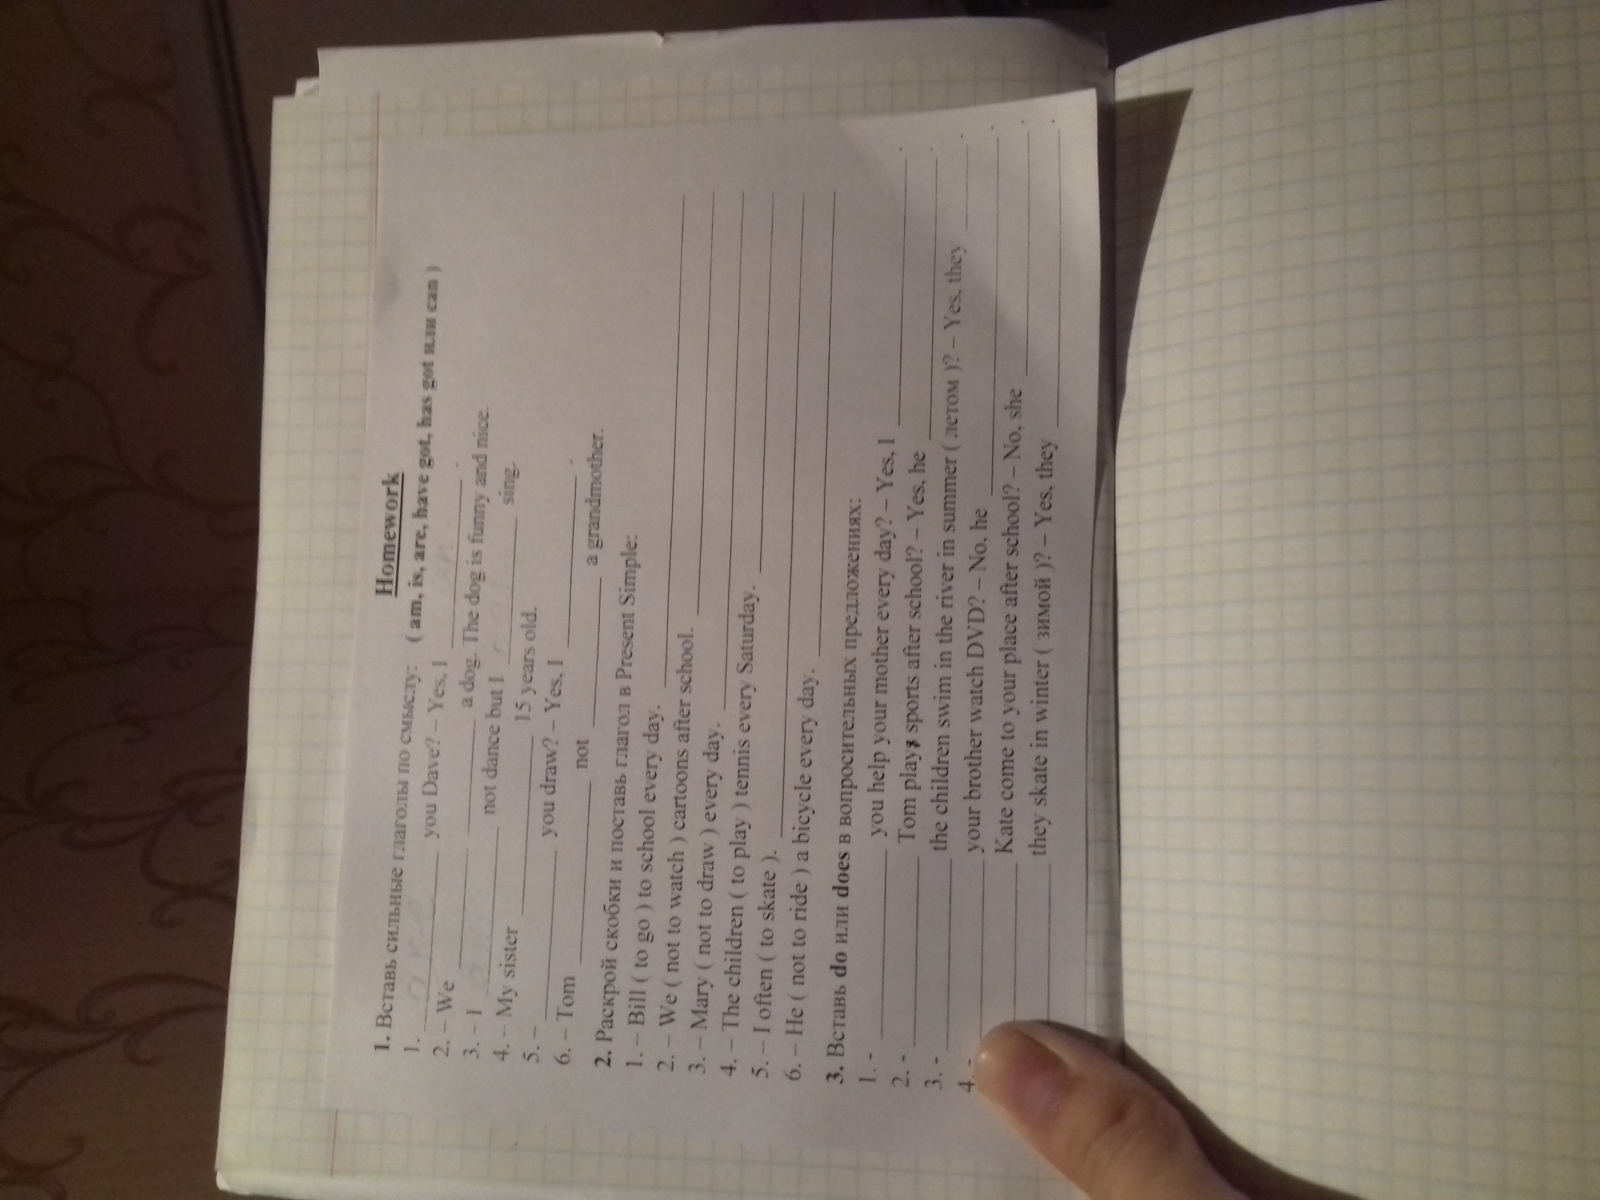 Homework
1. Вставь сильные глаголы по смыслу: ( am, is, are, have got, has got или can )
1. ____________ you Dave? – Yes, I ____________ .
2. – We ____________ a dog. The dog is funny and nice.
3. – I ____________ not dance but I ____________ sing.
4. – My sister ____________ 15 years old.
5. – ____________ you draw? – Yes, I ____________ .
6. – Tom ____________ not ____________ a grandmother.
2. Раскрой скобки и поставь глагол в Present Simple:
1. – Bill ( to go ) to school every day. ____________
2. – We ( not to watch ) cartoons after school. ____________
3. – Mary ( not to draw ) every day. ____________
4. – The children ( to play ) tennis every Saturday. ____________
5. – I often ( to skate ). ____________
6. – He ( not to ride ) a bicycle every day. ____________
3. Вставь do или does в вопросительных предложениях:
1. - ____________ you help your mother every day? – Yes, I ____________ .
2. - ____________ Tom play sports after school? – Yes, he ____________ .
3. - ____________ the children swim in the river in summer ( летом )? – Yes, they ____________ .
4. - ____________ your brother watch DVD? – No, he ____________ .
____________ Kate come to your place after school? – No, she ____________ .
____________ they skate in winter ( зимой )? – Yes, they ____________ .